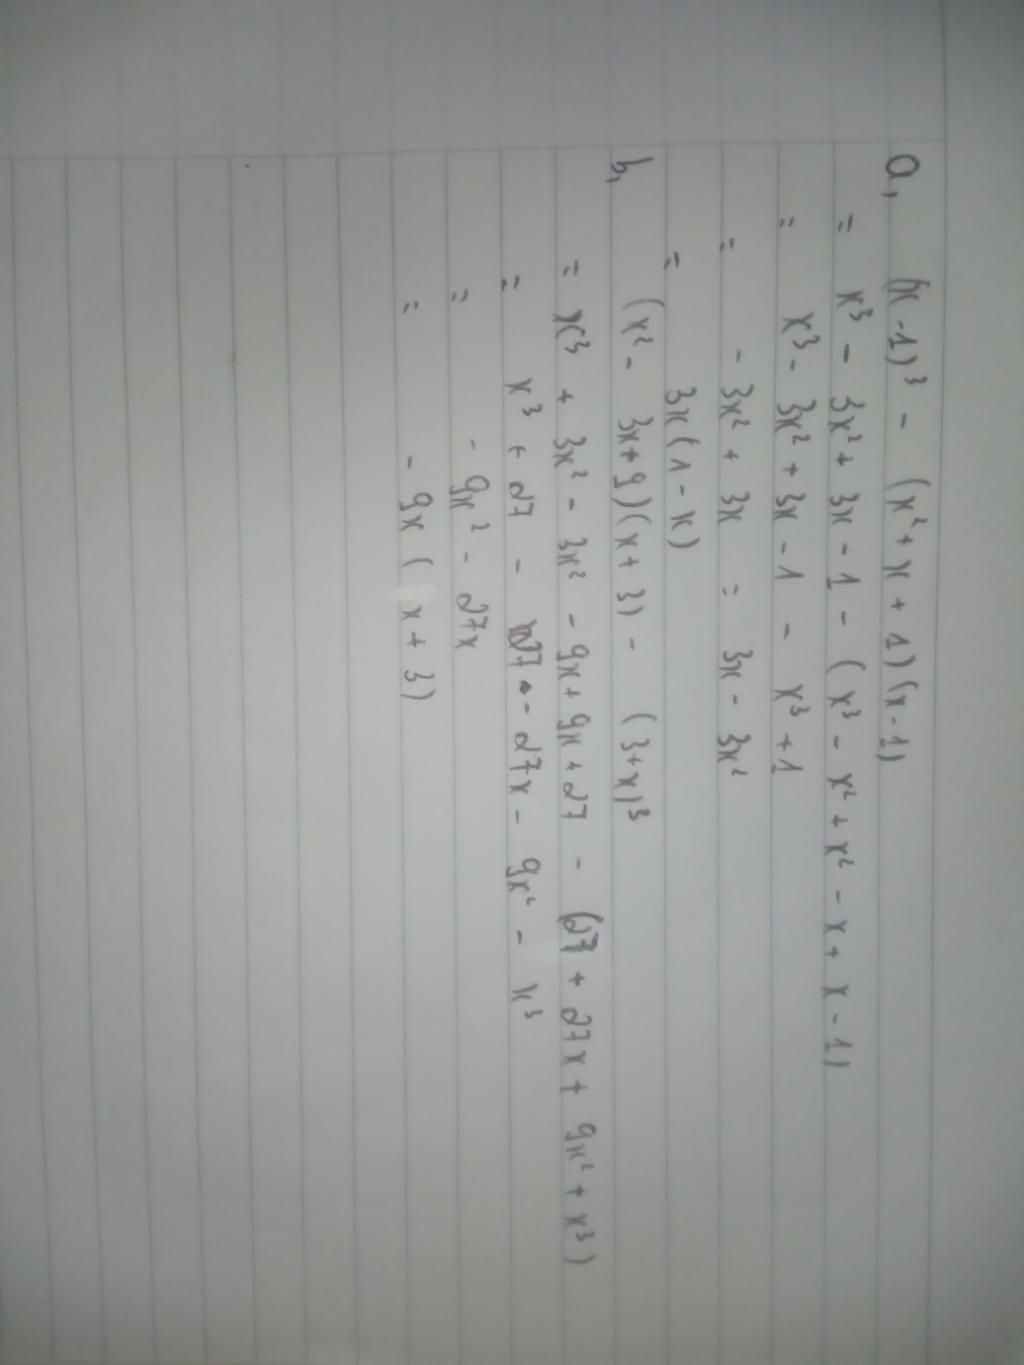 a, (x - 1)³ - (x² + x + 1)(x - 1)
= x³ - 3x² + 3x - 1 - (x³ - x² + x² - x + x - 1)
= x³ - 3x² + 3x - 1 - x³ + 1
= - 3x² + 3x = 3x - 3x²
= 3x(1 - x)
b, (x² - 3x + 9)(x + 3) - (3 + x)³
= x³ + 3x² - 3x² - 9x + 9x + 27 - (27 + 27x + 9x² + x³)
= x³ + 27 - 27 - 27x - 9x² - x³
= - 9x² - 27x
= - 9x(x + 3)